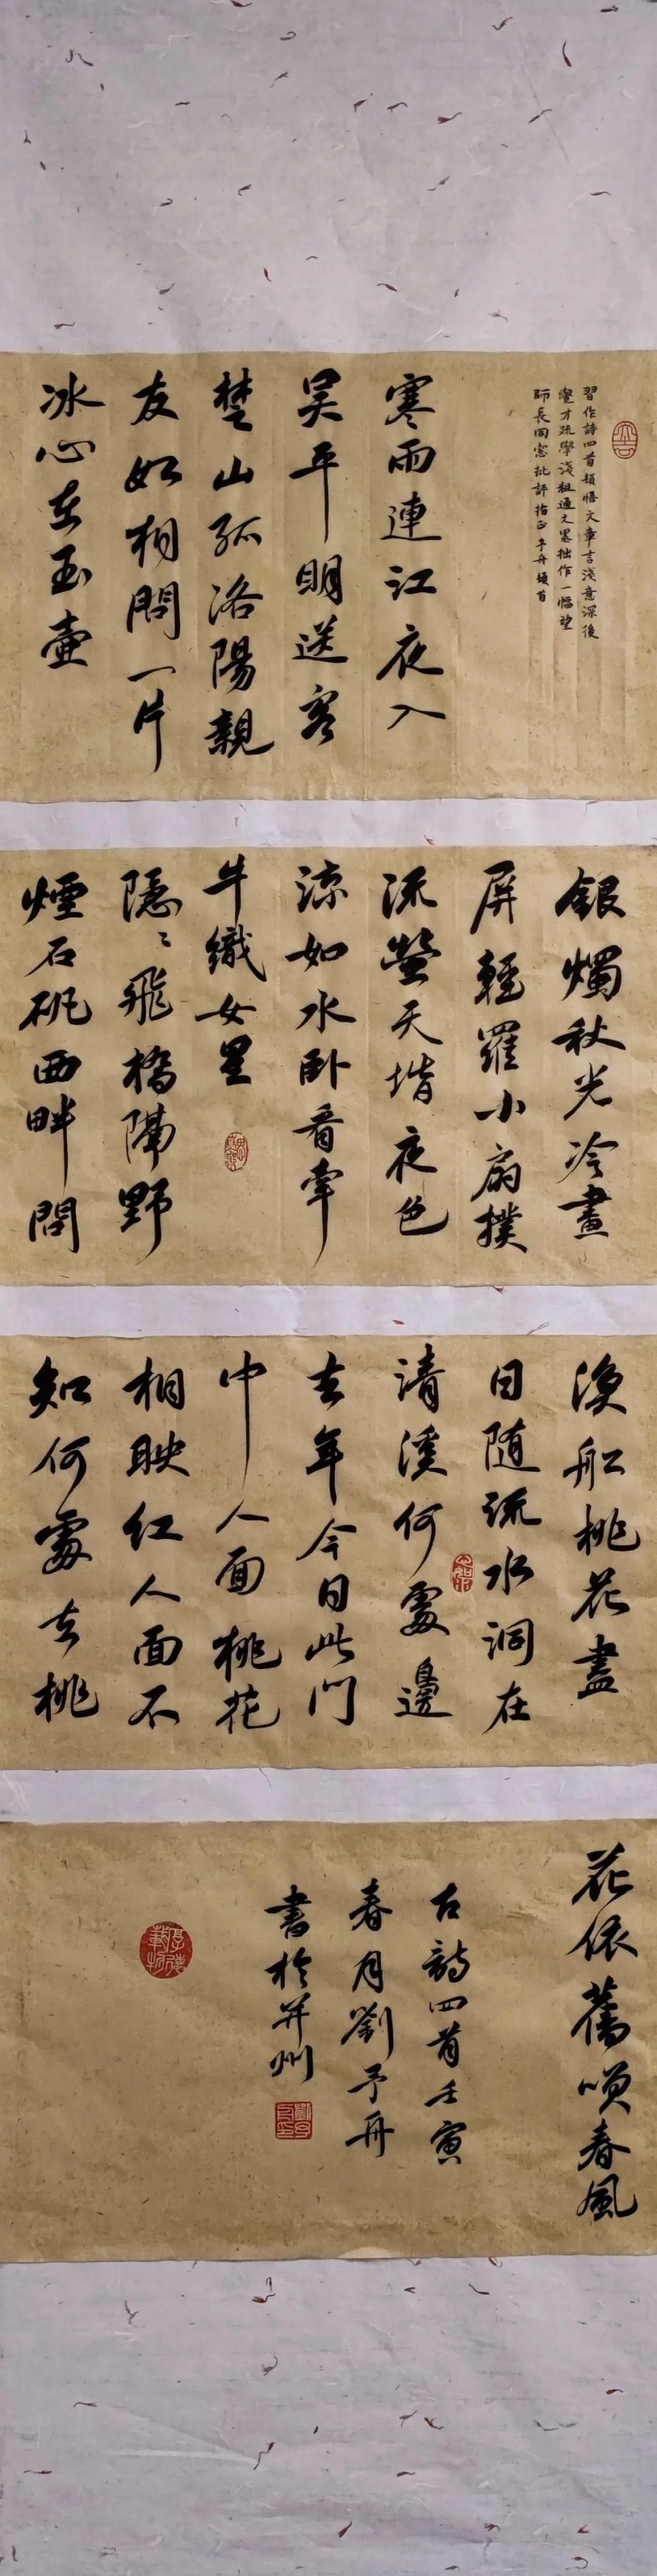 習作詩四首頓悟文章言淺意深後
覺才疏學淺粗通文墨拙作一幅望
師長同窓批評指正予舟頓首
寒雨連江夜入
吴平明送客
楚山孤洛陽親
友如相問一片
冰心在玉壺
銀燭秋光冷畫
屏輕羅小扇撲
流螢天堦夜色
涼如水卧看牽
牛織女星
隱〻飛橋隔野
煙石磯西畔問
漁船桃花盡
日随流水洞在
清溪何處邊
去年今日此門
中人面桃花
相映红人面不
知何處去桃
花依舊唉春風
古詩四首壬寅
春月劉予舟
書於并州
厚德載物